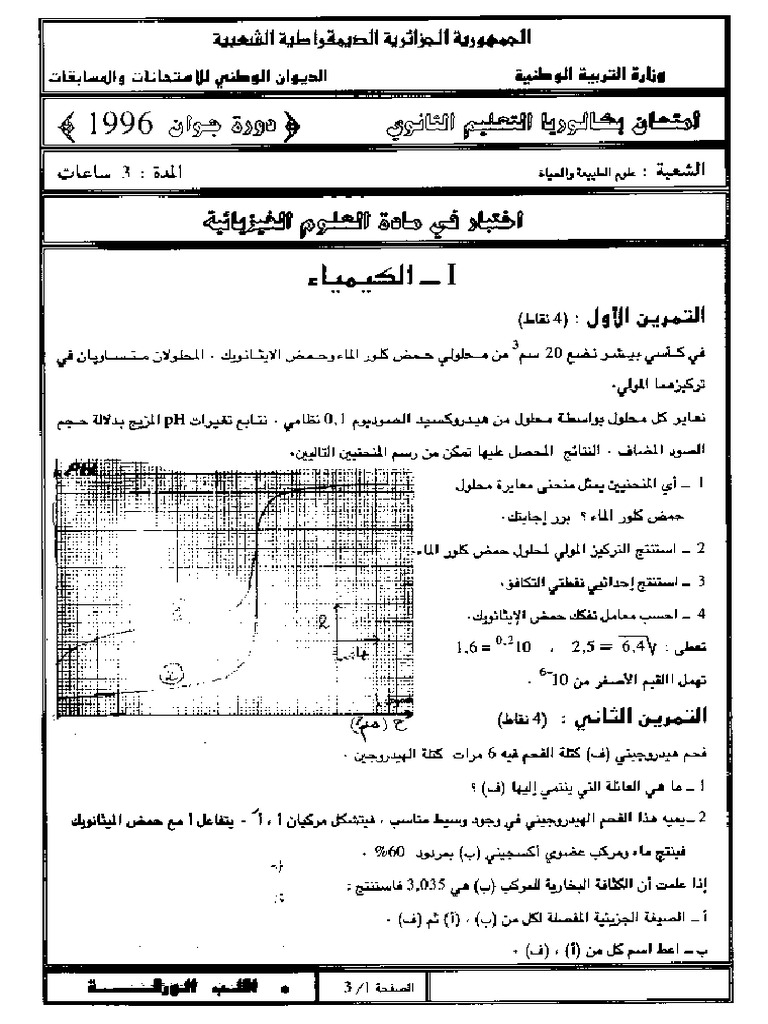 الجمهورية الجزائرية الديمقراطية الشعبية
وزارة التربية الوطنية الديوان الوطني للامتحانات والمسابقات
امتحان بكالوريا التعليم الثانوي ﴿ دورة جوان 1996 ﴾
الشعبة : علوم الطبيعة والحياة المدة : 3 ساعات
اختبار في مادة العلوم الفيزيائية
I ــ الكيمياء
التمرين الأول : (4 نقاط)
في كأسي بيشر نضع 20 سم³ من محلولي حمض كلور الماء وحمض الايثانويك . المحلولان متساويان في
تركيزهما المولي.
نعاير كل محلول بواسطة محلول من هيدروكسيد الصوديوم 0,1 نظامي . نتابع تغيرات pH المزيج بدلالة حجم
الصود المضاف . النتائج المحصل عليها تمكن من رسم المنحنيين التاليين.
1 ــ أي المنحنيين يمثل منحنى معايرة محلول
حمض كلور الماء ؟ برر إجابتك.
2 ــ استنتج التركيز المولي لمحلول حمض كلور الماء.
3 ــ استنتج إحداثيي نقطتي التكافؤ.
4 ــ احسب معامل تفكك حمض الإيثانويك.
تعطى : √6,4 = 2,5 ، 10^0,2 = 1,6
تهمل االقيم الأصغر من 10^-6 .
pH
2
ح (سم³)
التمرين الثاني : (4 نقاط)
فحم هيدروجيني (ف) كتلة الفحم فيه 6 مرات كتلة الهيدروجين .
1 ــ ما هي العائلة التي ينتمي إليها (ف) ؟
2 ــ يميه هذا الفحم الهيدروجيني في وجود وسيط مناسب ، فيتشكل مركبان أ ، أَ - يتفاعل أ مع حمض الميثانويك
فينتج ماء ومركب عضوي أكسجيني (ب) بمردود 60% .
إذا علمت أن الكثافة البخارية للمركب (ب) هي 3,035 فاستنتج :
أ ــ الصيغة الجزيئية المفصلة لكل من (ب) ، (أ) ثم (ف) .
ب ــ اعط اسم كل من (أ) ، (ف) .
الصفحة 1/ 3 اقلب الورقــة